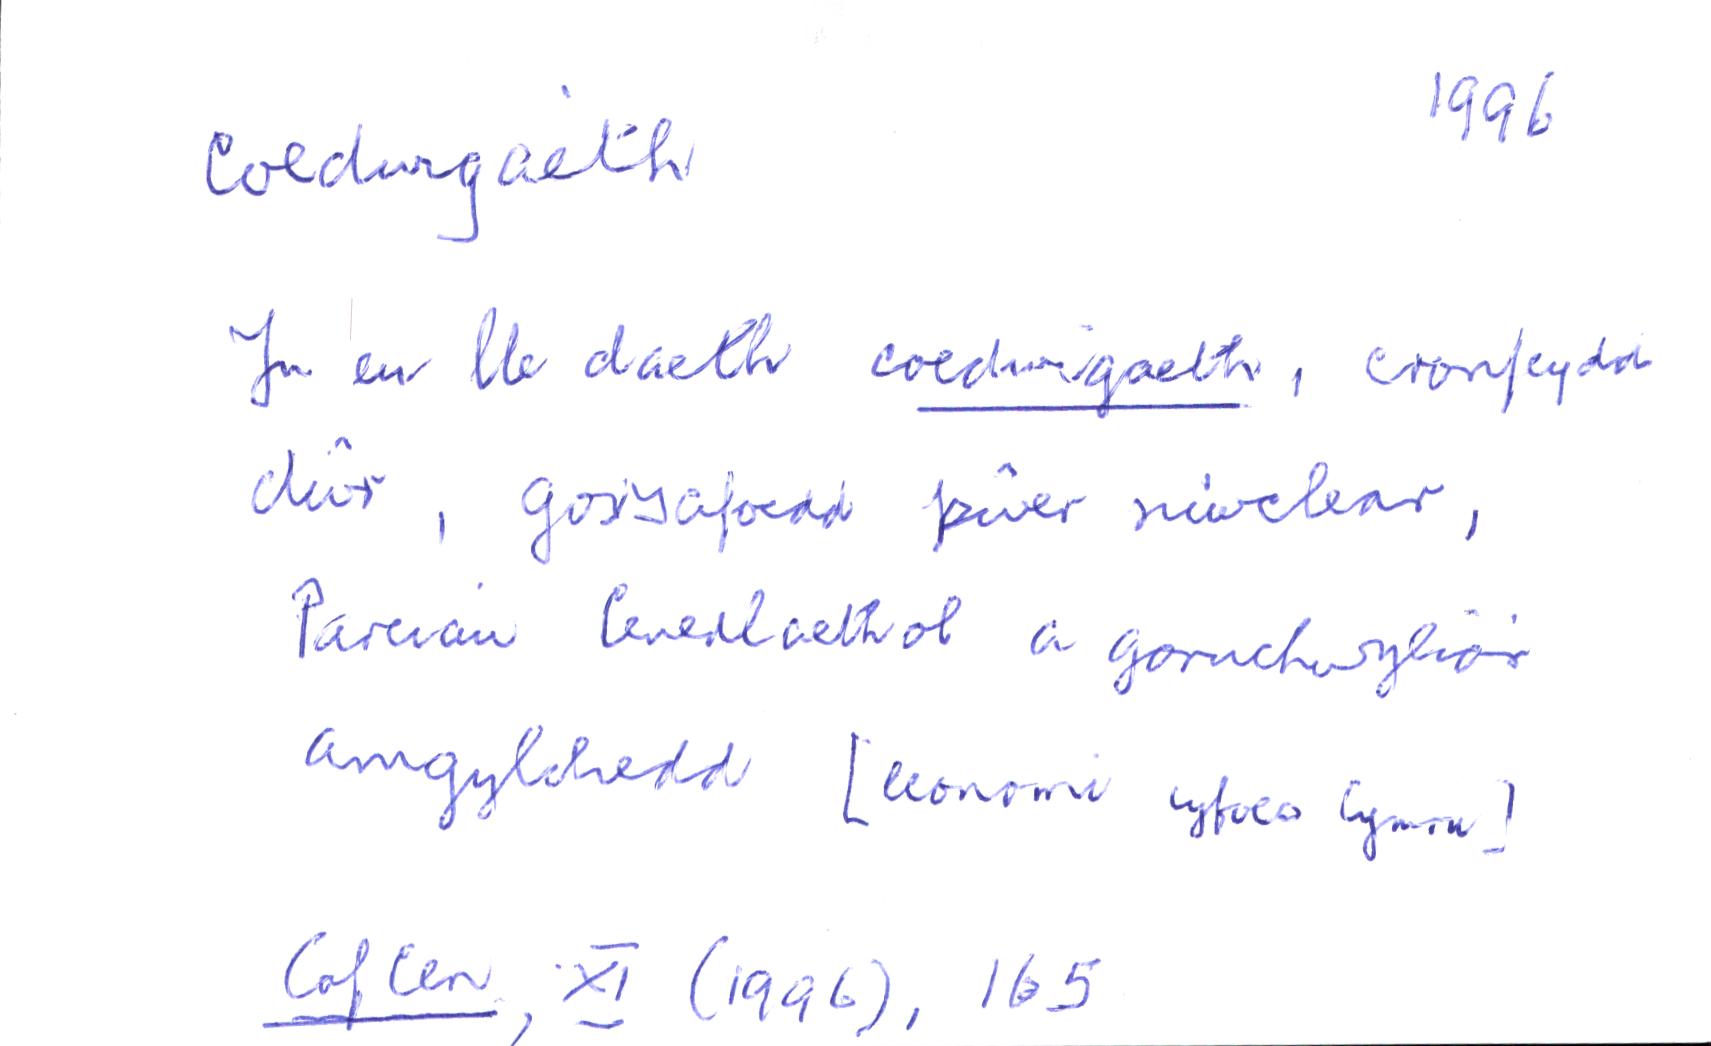 1996
Coedwigaeth
Yn eu lle daeth coedwigaeth, cronfeydd
dŵr, gorsafoedd pŵer niwclear,
Parciau Cenedlaethol a goruchwylio'r
amgylchedd [economi cyfoes Cymru]
Cof Cen, XI (1996), 165